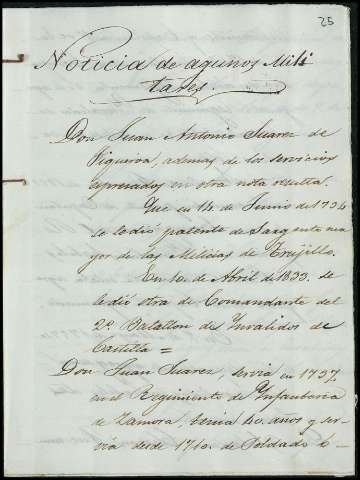 25
Noticia de agunos Mili
tares.
Don Juan Antonio Suarez de
Figueroa, ademas de los servicios
espresados en otra nota resulta.
Que en 14 de Junio de 1734
se le dió patente de Sargento ma
yor de las Milicias de Trujillo.
En 10 de Abril de 1833 se
le dió otra de Comandante del
2º Batallon de Ynvalidos de
Castilla =
Don Juan Suarez, servia en 1737
en el Regimiento de Ynfanteria
de Zamora, tenia 40 años y ser
via desde 1710 de Soldado é-